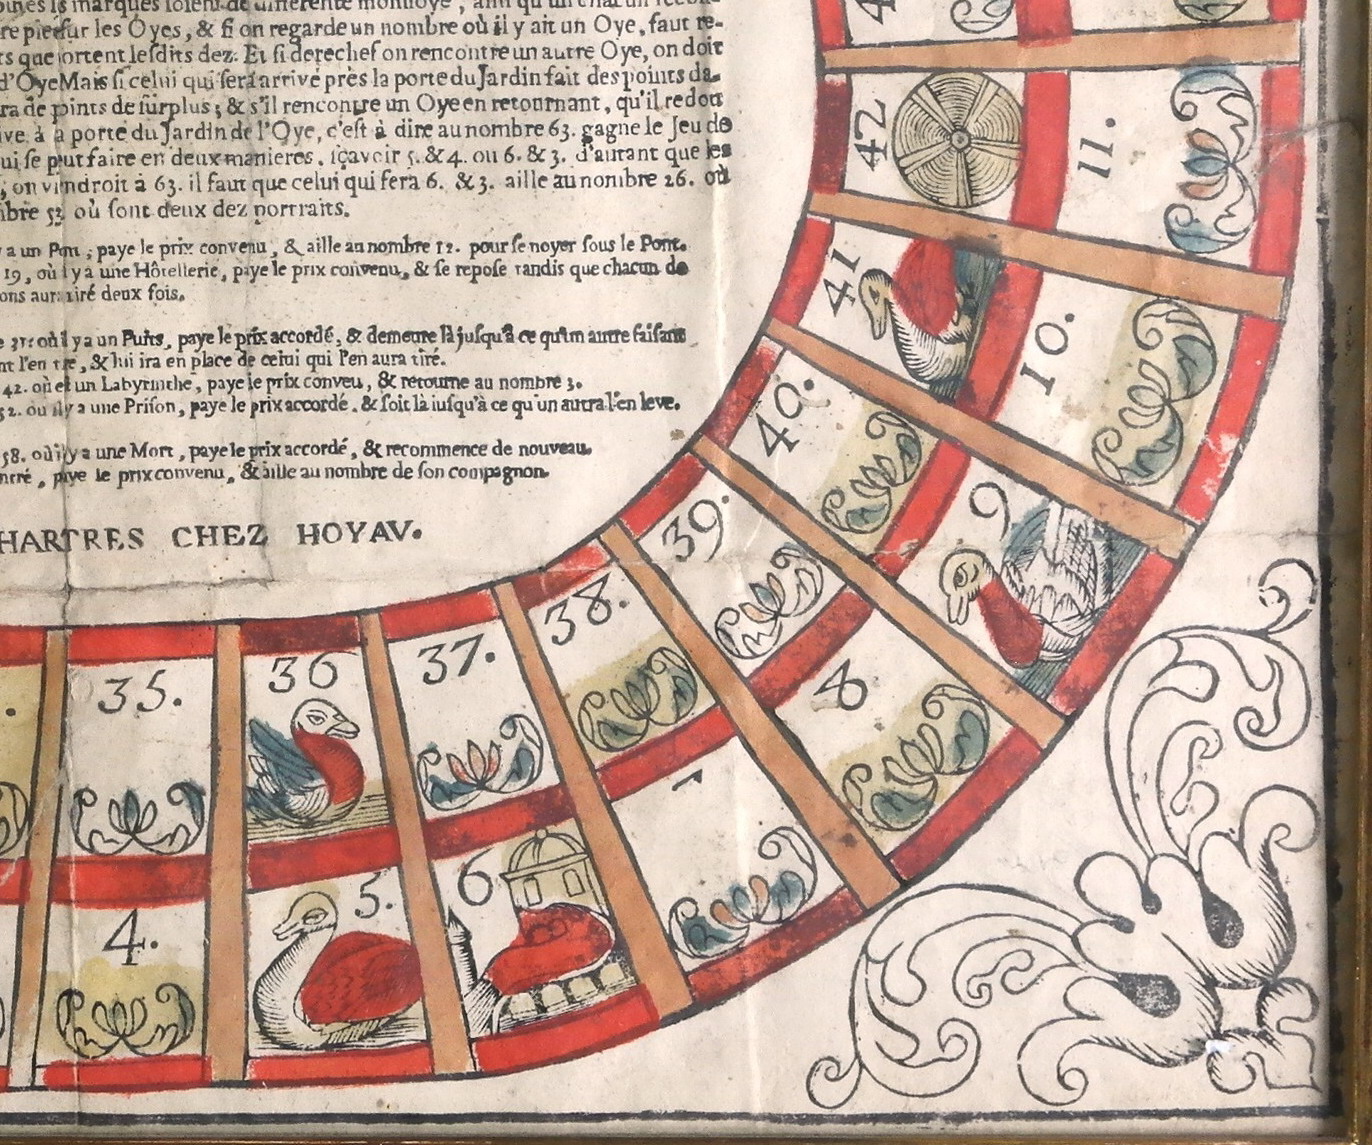 re pierre sur les Oyes, & si on regarde un nombre où il y ait un Oye, faut re-
ts que portent lesdits dez. Et si derechef on rencontre un autre Oye, on doit
d'Oye Mais si celui qui sera arrivé près la porte du Jardin fait des points da-
ra de points de surplus; & s'il rencontre un Oye en retournant, qu'il redou
ive à a porte du Jardin de l'Oye, c'est à dire au nombre 63. gagne le Jeu de
ui se peut faire en deux manieres, sçavoir 5. & 4. ou 6. & 3. d'autant que les
, on viendroit à 63. il faut que celui qui fera 6. & 3. aille au nombre 26. où
ibre 53 où sont deux dez portraits.
y a un Pont; paye le prix convenu, & aille au nombre 12. pour se noyer sous le Pont.
19, où il y a une Hôtellerie, paye le prix convenu, & se repose tandis que chacun de
ons aura tiré deux fois.
31. où il y a un Puits, paye le prix accordé, & demeure là jusqu'à ce qu'un autre faisant
nt l'en tire, & lui ira en place de celui qui l'en aura tiré.
42. où est un Labyrinthe, paye le prix conveu, & retourne au nombre 3.
52. où il y a une Prison, paye le prix accordé, & soit là jusqu'à ce qu'un autra l'en leve.
58. où il y a une Mort, paye le prix accordé, & recommence de nouveau.
ncré, paye le prix convenu, & aille au nombre de son compagnon.
HARTRES CHEZ HOYAV.
42
11.
41
10.
40.
9
39.
8
38.
7
37.
6
36
5.
35.
4.